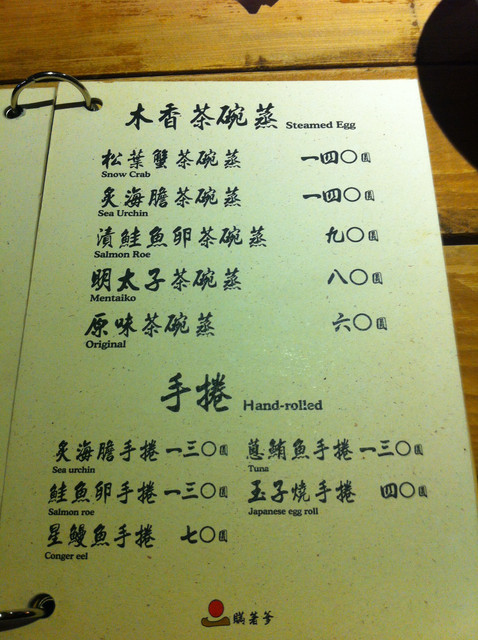 木香茶碗蒸 Steamed Egg
松葉蟹茶碗蒸 一四〇圓
Snow Crab
炙海膽茶碗蒸 一四〇圓
Sea Urchin
漬鮭魚卵茶碗蒸 九〇圓
Salmon Roe
明太子茶碗蒸 八〇圓
Mentaiko
原味茶碗蒸 六〇圓
Original
手捲 Hand-rolled
炙海膽手捲 一三〇圓 蔥鮪魚手捲 一三〇圓
Sea urchin Tuna
鮭魚卵手捲 一三〇圓 玉子燒手捲 四〇圓
Salmon roe Japanese egg roll
星鰻魚手捲 七〇圓
Conger eel